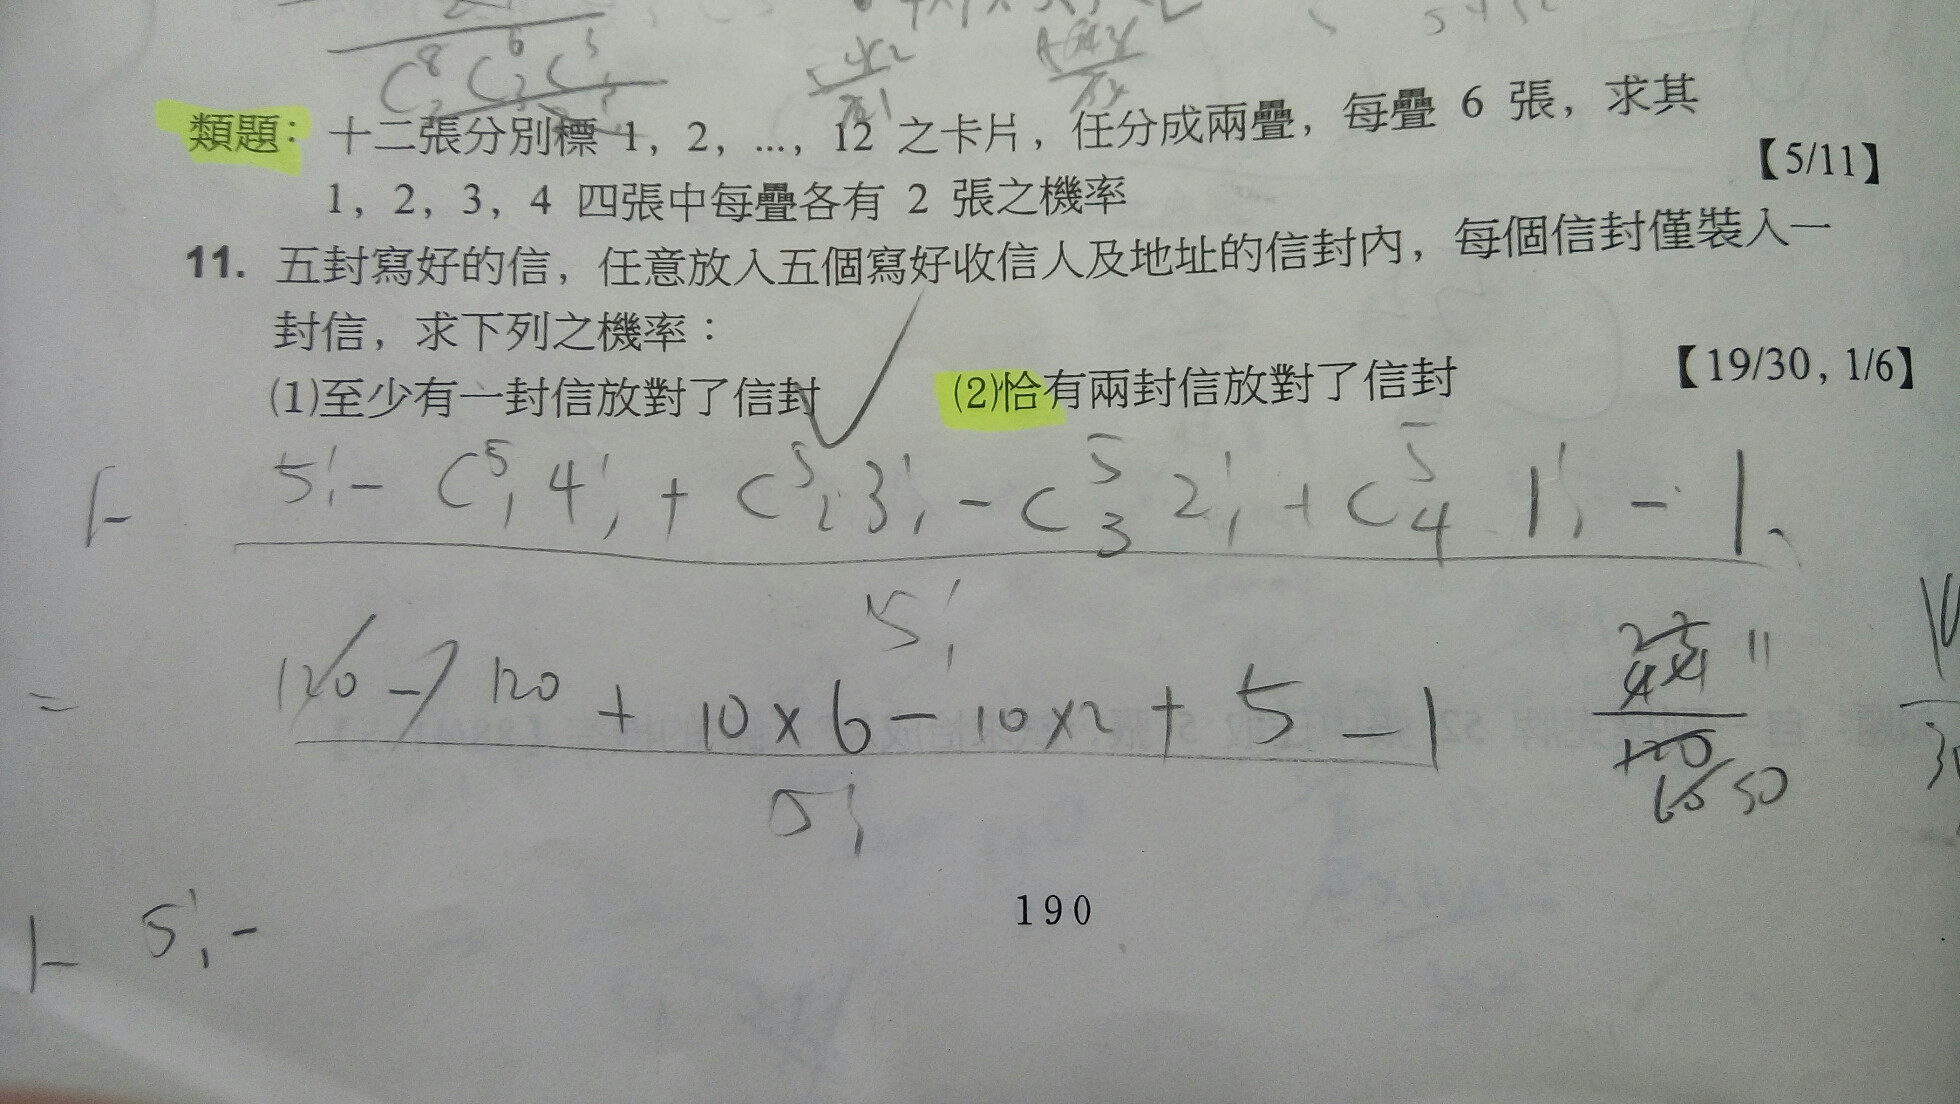 C⁸₂ C⁶₂ C³
類題： 十二張分別標 1，2，...，12 之卡片，任分成兩疊，每疊 6 張，求其
1，2，3，4 四張中每疊各有 2 張之機率 【5/11】
11. 五封寫好的信，任意放入五個寫好收信人及地址的信封內，每個信封僅裝入一
封信，求下列之機率：
(1)至少有一封信放對了信封 (2)恰有兩封信放對了信封 【19/30，1/6】
1- 5! - C⁵₁ 4! + C⁵₂ 3! - C⁵₃ 2! + C⁵₄ 1! - 1
5!
= 120 - 120 + 10×6 - 10×2 + 5 - 1
5!
44 11
120
60 30
190
1- 5! -